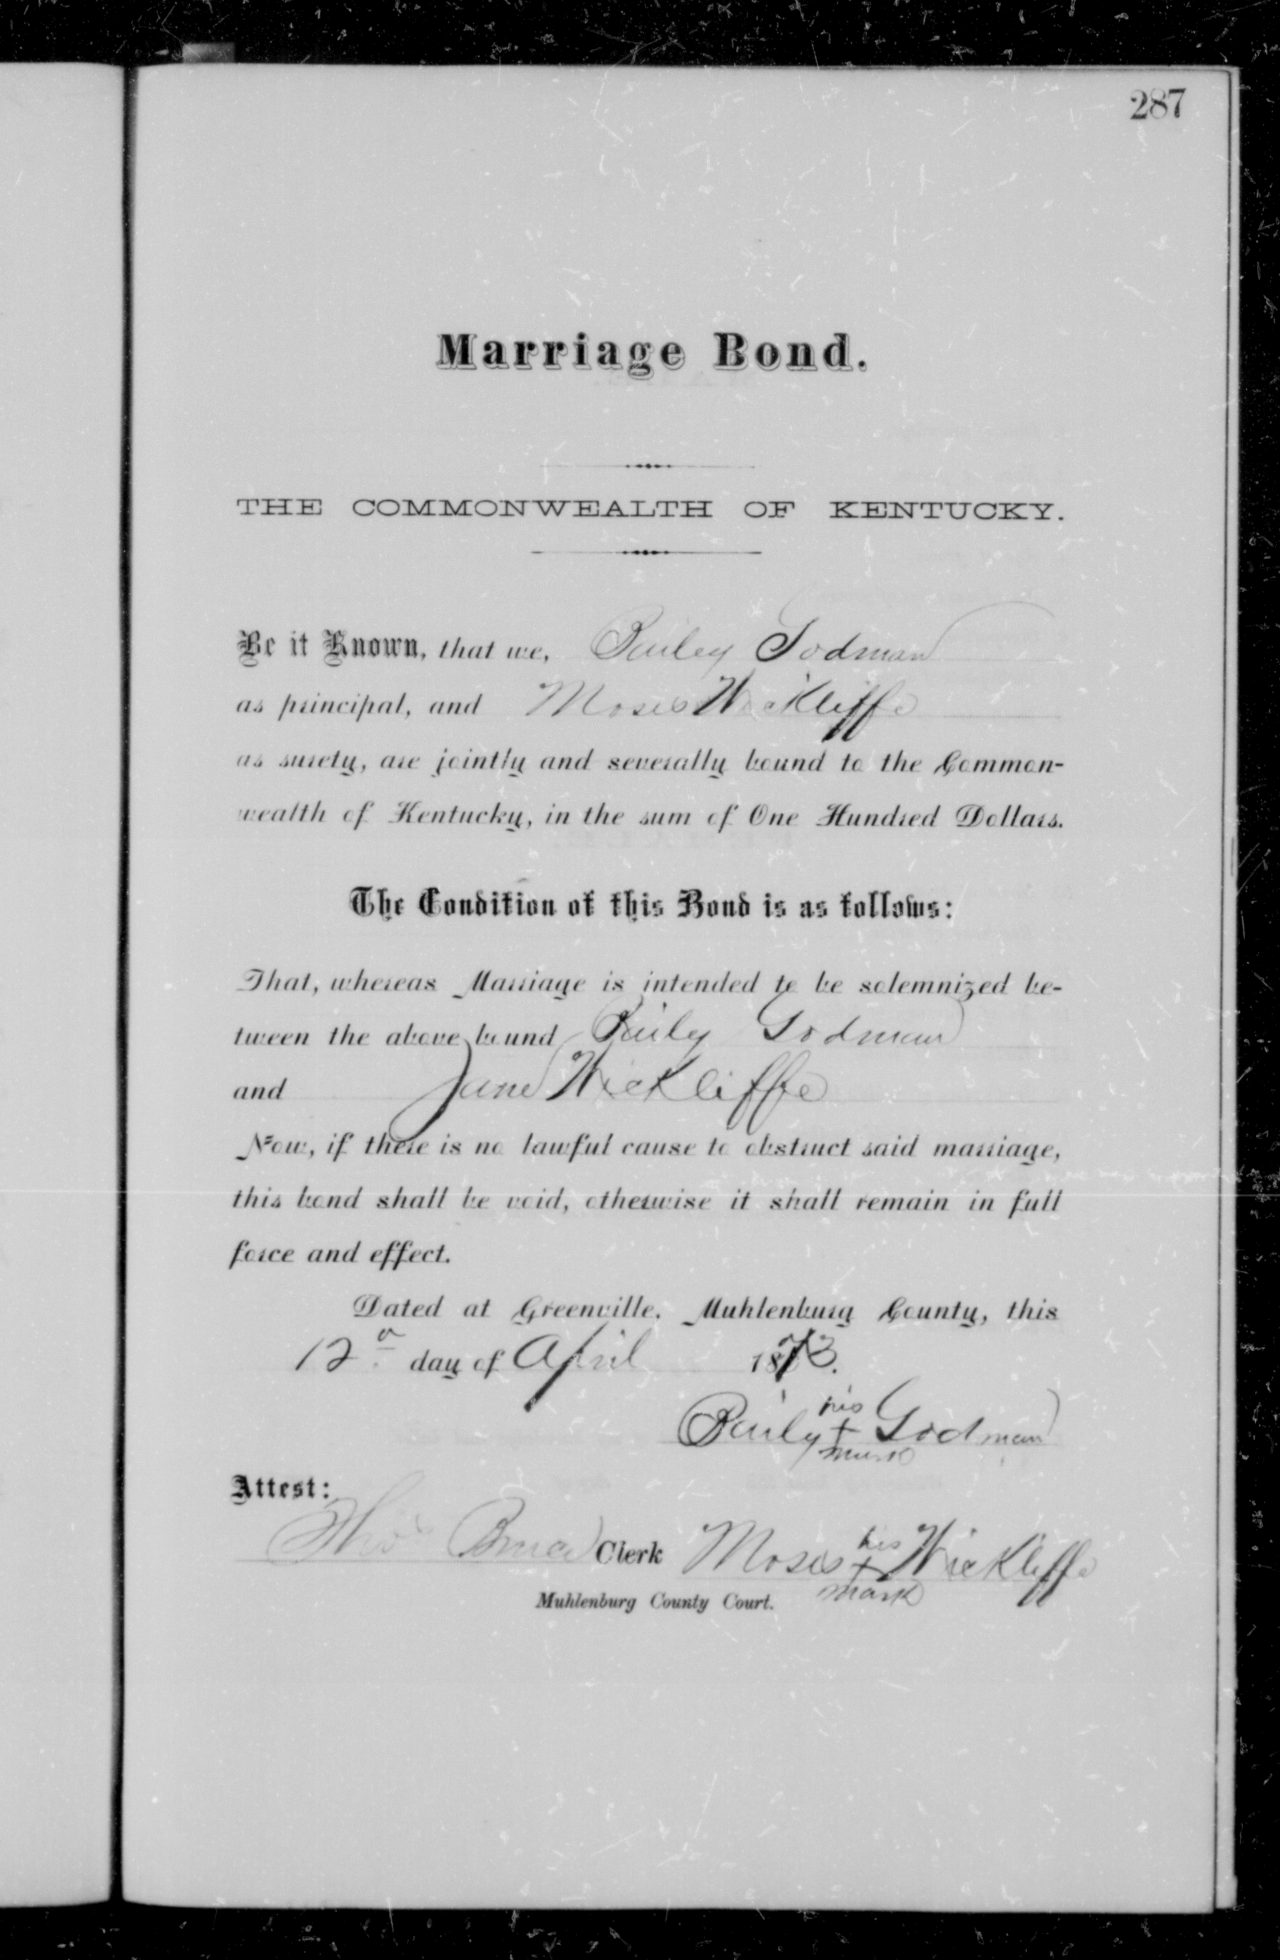 287
Marriage Bond.
THE COMMONWEALTH OF KENTUCKY.
Be it Known, that we, Bailey Godman
as principal, and Moses Wickliffe
as surety, are jointly and severally bound to the Common-
wealth of Kentucky, in the sum of One Hundred Dollars.
The Condition of this Bond is as follows:
That, whereas Marriage is intended to be solemnized be-
tween the above bound Baily Godman
and Jane Wickliffe
Now, if there is no lawful cause to obstruct said marriage,
this bond shall be void, otherwise it shall remain in full
force and effect.
Dated at Greenville, Muhlenburg County, this
12 day of April 1873.
Baily his + mark Godman
Attest:
Thos Bruce Clerk Moses his + mark Wickliffe
Muhlenburg County Court.